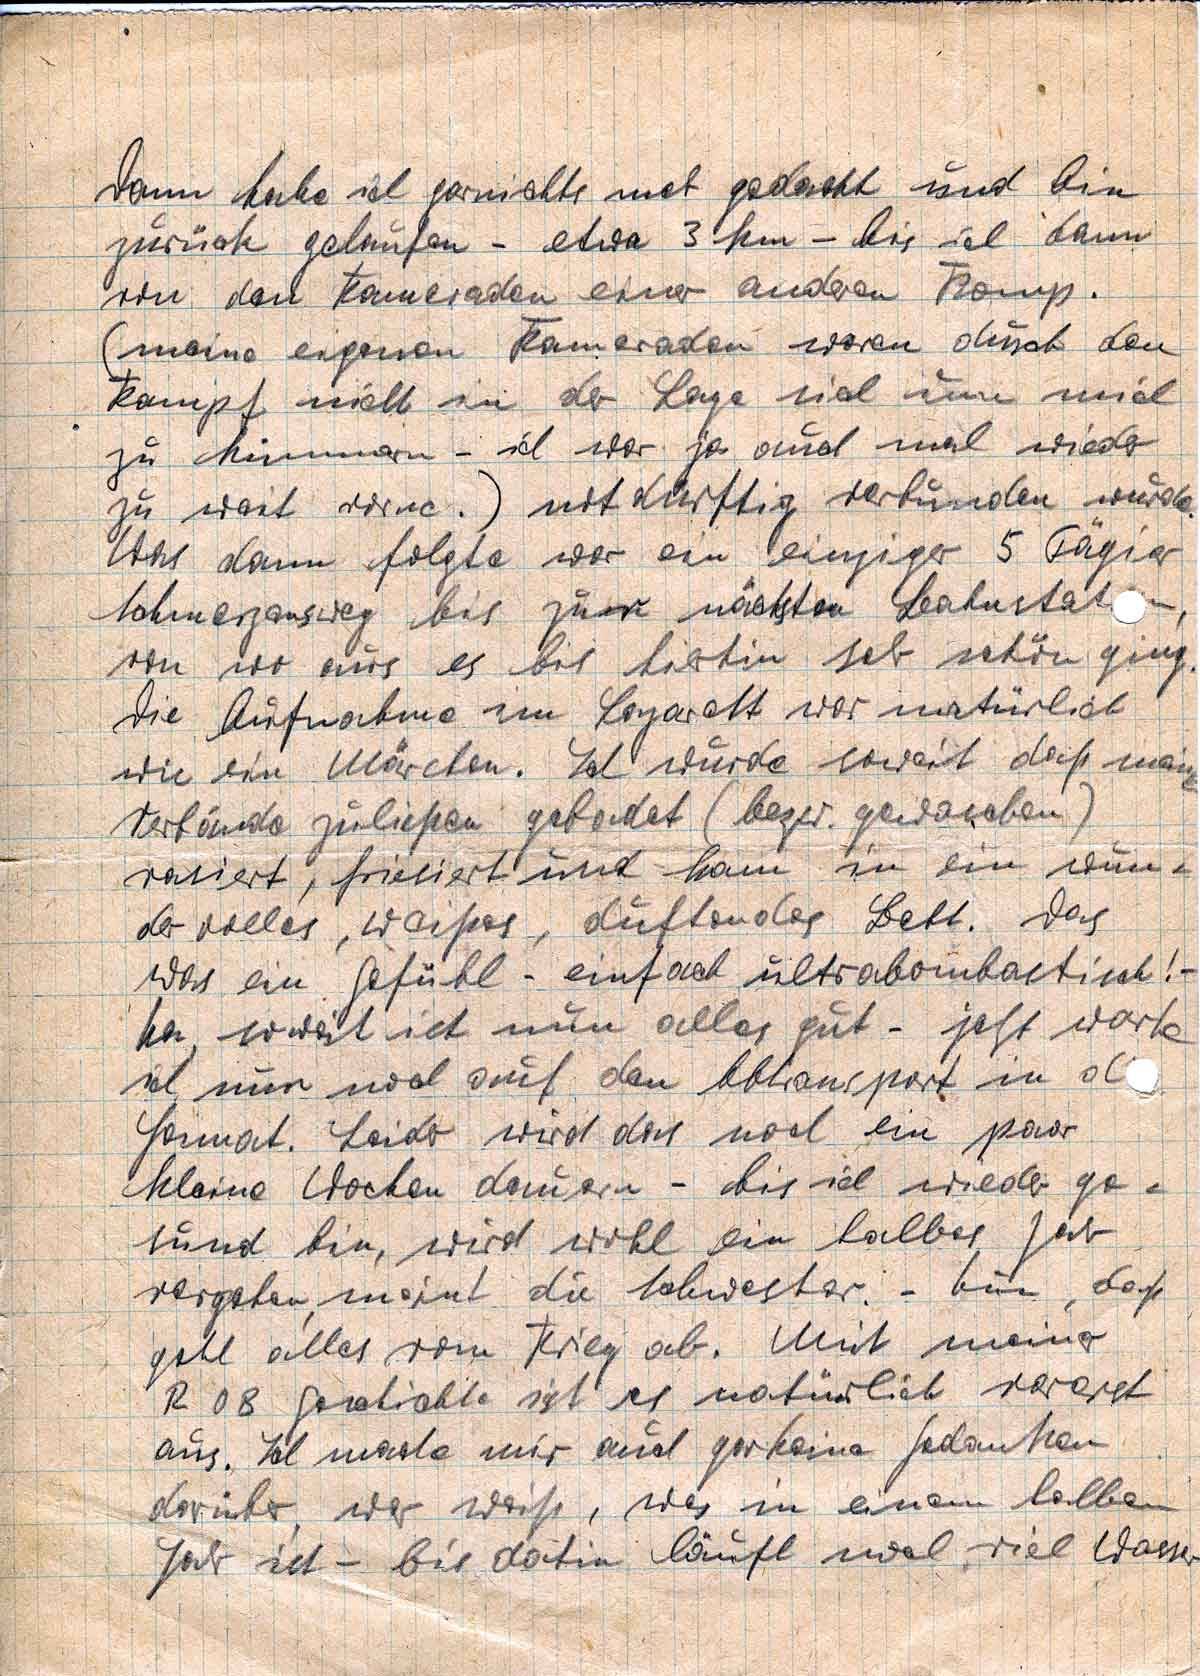 Dann habe ich garnichts met gedacht und bin
zurück gelaufen - etwa 3 km - bis ich dann
von den Kameraden einer anderen Komp.
(meine eigenen Kameraden waren durch den
Kampf nicht in der Lage sich um mich
zu kümmern - ich war ja auch mal wieder
zu weit vorne.) notdürftig verbunden wurde.
Was dann folgte war ein einziger 5 Tägier
Schmerzensweg bis zur nächsten Bahnstation,
von wo aus es bis hierhin sehr schön ging.
Die Aufnahme im Lazarett war natürlich
wie ein Märchen. Ich wurde soweit daß meine
Verbände zuließen gebadet (bezw. gewaschen)
rasiert, frisiert und kam in ein wun-
dervolles, weißes, duftendes Bett. Das
was ein Gefühl - einfach ultrabombastisch! -
Na, soweit ist nun alles gut - jetzt warte
ich nur noch auf den Abtransport in d
Heimat. Leider wird das noch ein paar
kleine Wochen dauern - bis ich wieder ge-
sund bin, wird wohl ein halbes Jahr
vergehen, meint die Schwester. - Nun, daß
geht alles vom Krieg ab. Mit meiner
R O B Geschichte ist es natürlich vorerst
aus. Ich mache mir auch garkeine Gedanken
darüber, wer weiß, was in einem halben
Jahr ist - bis dahin läuft noch viel Wasser